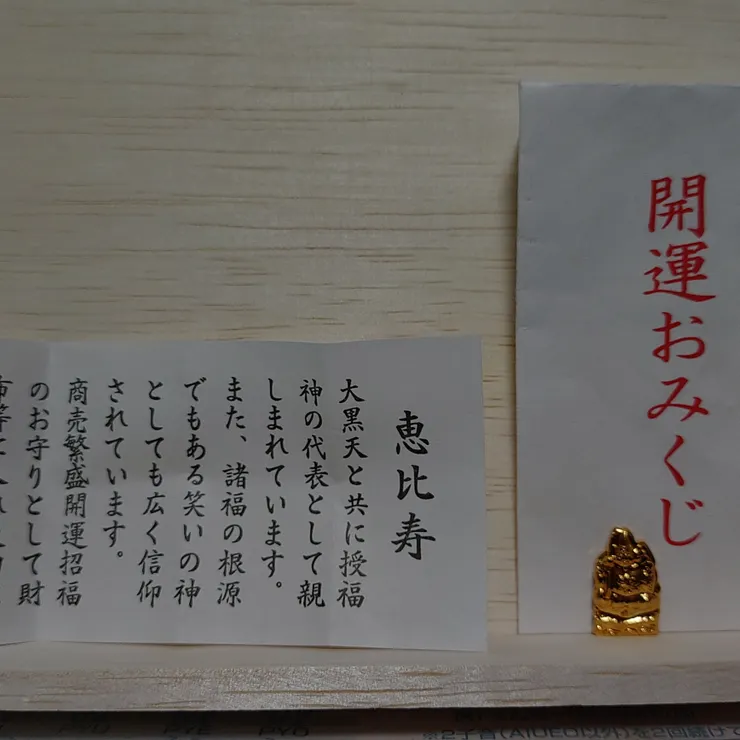 開運おみくじ
恵比寿
大黒天と共に授福
神の代表として親
しまれています。
また、諸福の根源
でもある笑いの神
としても広く信仰
されています。
商売繁盛開運招福
のお守りとして財